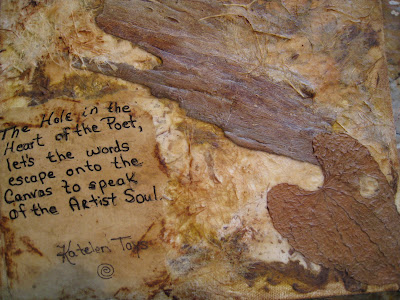 The Hole in the
Heart of the Poet,
let's the words
escape onto the
Canvas to speak
of the Artist Soul.
Katelen